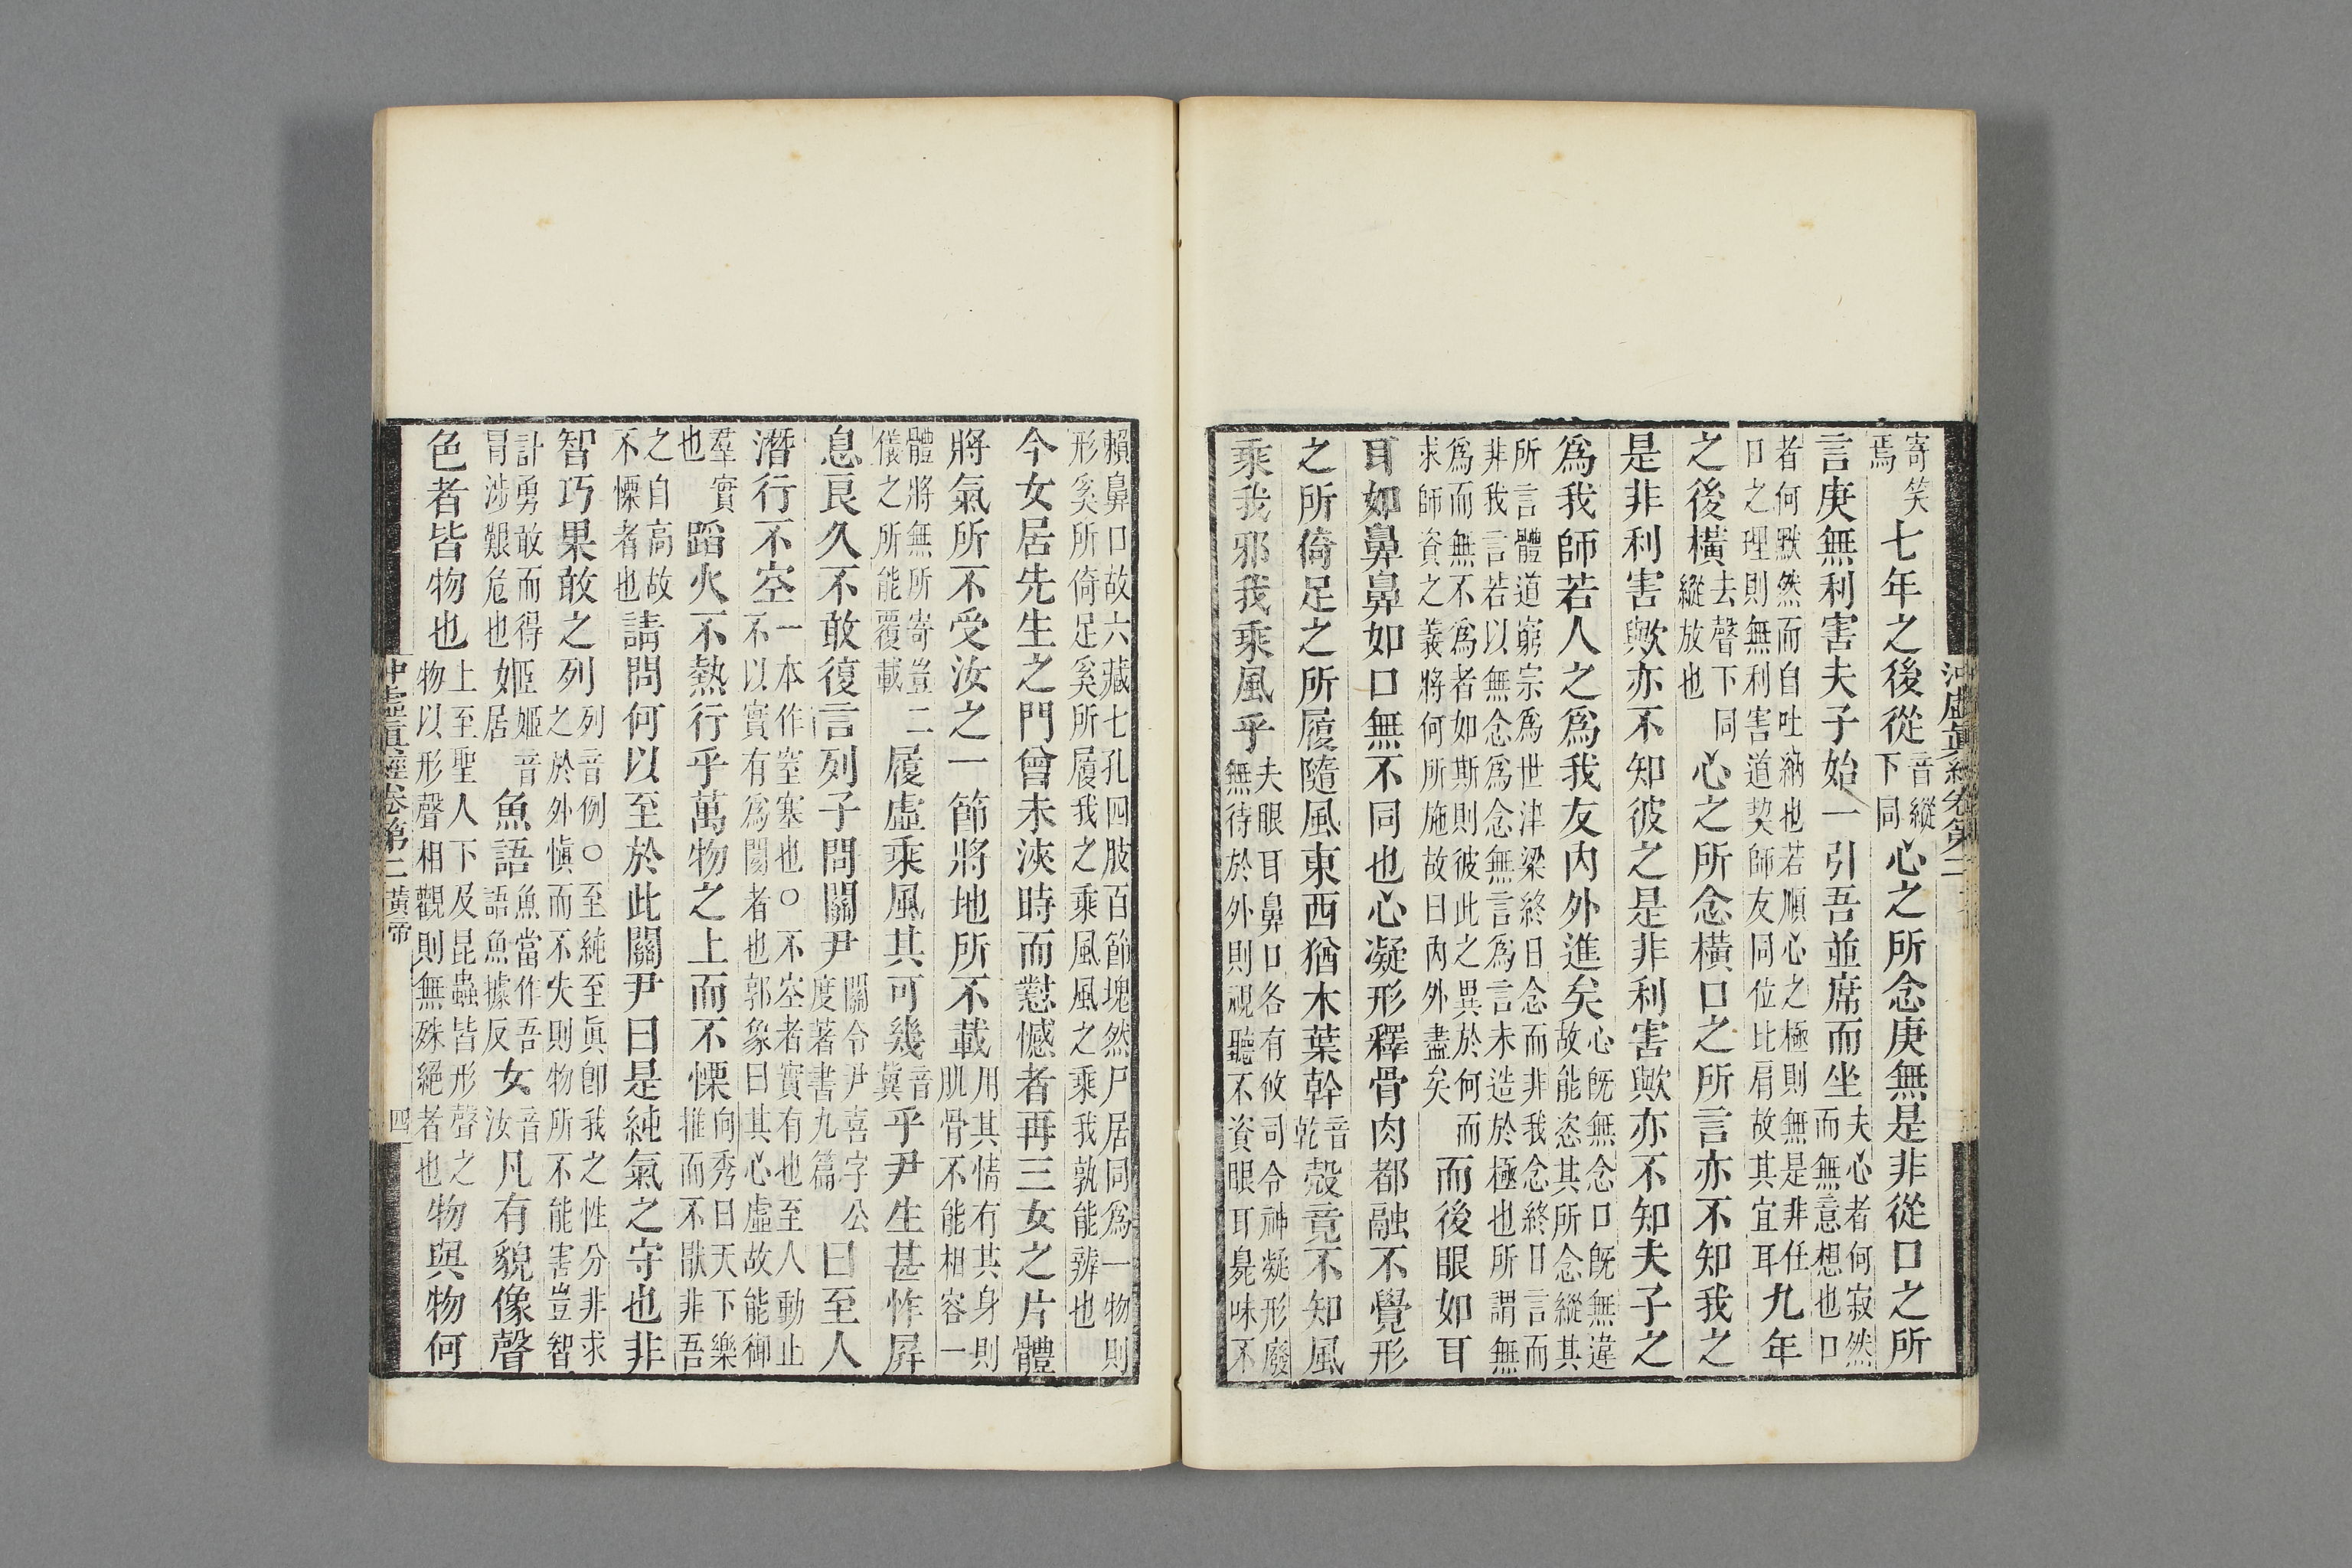 沖虛眞經卷第二
寄笑焉七年之後從音縱下同心之所念庚無是非從口之所
言庚無利害夫子始一引吾並席而坐夫心者何寂然而無意想也口
者何默然而自吐納也若順心之極則無是非任口之理則無利害道契師友同位比肩故其宜耳九年
之後橫去聲下同縱放也心之所念橫口之所言亦不知我之
是非利害歟亦不知彼之是非利害歟亦不知夫子之
爲我師若人之爲我友內外進矣心旣無念口旣無違故能恣其所念縱其
所言體道窮宗爲世津梁終日念而非我念終日言而非我言若以無念爲念無言爲言未造於極也所謂無
爲而無不爲者如斯則彼此之異於何而求師資之義將何所施故曰內外盡矣而後眼如耳
耳如鼻鼻如口無不同也心凝形釋骨肉都融不覺形
之所倚足之所履隨風東西猶木葉幹音乾殼竟不知風
乘我邪我乘風乎夫眼耳鼻口各有攸司令神凝形廢無待於外則視聽不資眼耳臭味不
賴鼻口故六藏七孔四肢百節塊然尸居同爲一物則形奚所倚足奚所履我之乘風風之乘我孰能辨也
今女居先生之門曾未浹時而懟憾者再三女之片體
將氣所不受汝之一節將地所不載用其情有其身則肌骨不能相容一
體將無所寄豈二儀之所能覆載履虛乘風其可幾音冀乎尹生甚怍屏
息良久不敢復言列子問關尹關令尹喜字公度著書九篇曰至人
潛行不空一本作窒塞也○不空者實有也至人動止不以實有爲閡者也郭象曰其心虛故能御
羣實也蹈火不熱行乎萬物之上而不慄向秀曰天下樂推而不猒非吾
之自高故不慄者也請問何以至於此關尹曰是純氣之守也非
智巧果敢之列列音例○至純至眞卽我之性分非求之於外愼而不失則物所不能害豈智
計勇敢而得冒涉艱危也姬音居魚語魚當作吾語魚據反女音汝凡有貌像聲
色者皆物也上至聖人下及昆蟲皆形聲之物以形聲相觀則無殊絕者也物與物何
沖虛眞經卷第二 黃帝 四